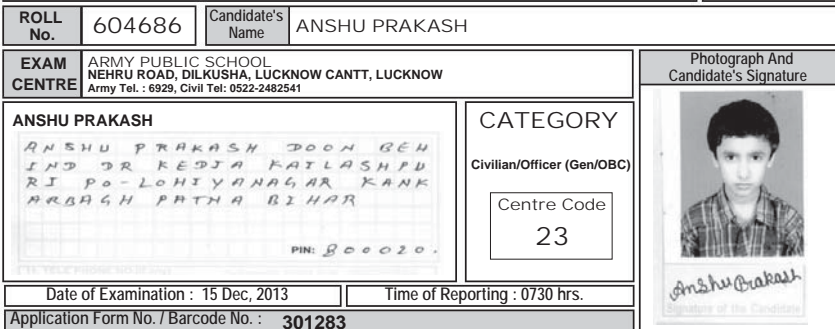 ROLL No. 604686 Candidate's Name ANSHU PRAKASH
EXAM CENTRE
ARMY PUBLIC SCHOOL
NEHRU ROAD, DILKUSHA, LUCKNOW CANTT, LUCKNOW
Army Tel. : 6929, Civil Tel: 0522-2482541
Photograph And
Candidate's Signature
ANSHU PRAKASH
ANSHU PRAKASH DOON BEH
IND DR KEDIA KAILASHPU
RI PO-LOHIYANAGAR KANK
ARBAGH PATNA BIHAR
PIN: 800020.
CATEGORY
Civilian/Officer (Gen/OBC)
Centre Code
23
Anshu Prakash
Signature of the Candidate
Date of Examination : 15 Dec, 2013
Time of Reporting : 0730 hrs.
Application Form No. / Barcode No. : 301283